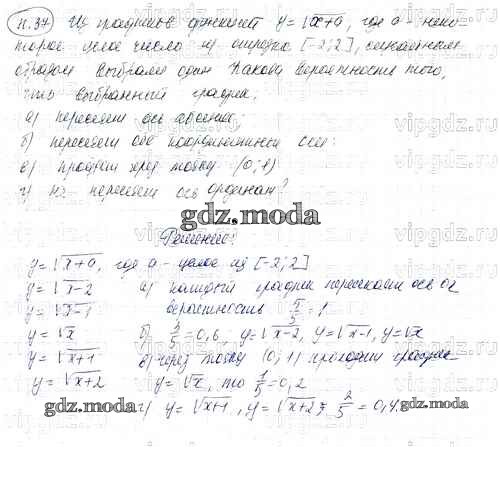 11.37 Из графиков функций y = √x+a, где a - неко
торое целое число из отрезка [-2;2], случайным
образом выбрали один. Какова вероятность того,
что выбранный график:
а) пересекает ось абсцисс;
б) пересекает обе координатные оси:
в) проходит через точку (0;1)
г) не пересекает ось ординат?
gdz.moda
Решение:
y=√x+a, где a - целое из [-2;2]
y=√x-2 а) каждый график пересекает ось ox
y=√x-1 вероятность 5/5 = 1
y=√x б) 3/5 = 0,6; y=√x-2, y=√x-1, y=√x
y=√x+1 в) через точку (0;1) проходит график
y=√x+2 y=√x, то 1/5 = 0,2
gdz.moda г) y=√x+1, y=√x+2; 2/5 = 0,4.
gdz.moda
vipgdz.ru